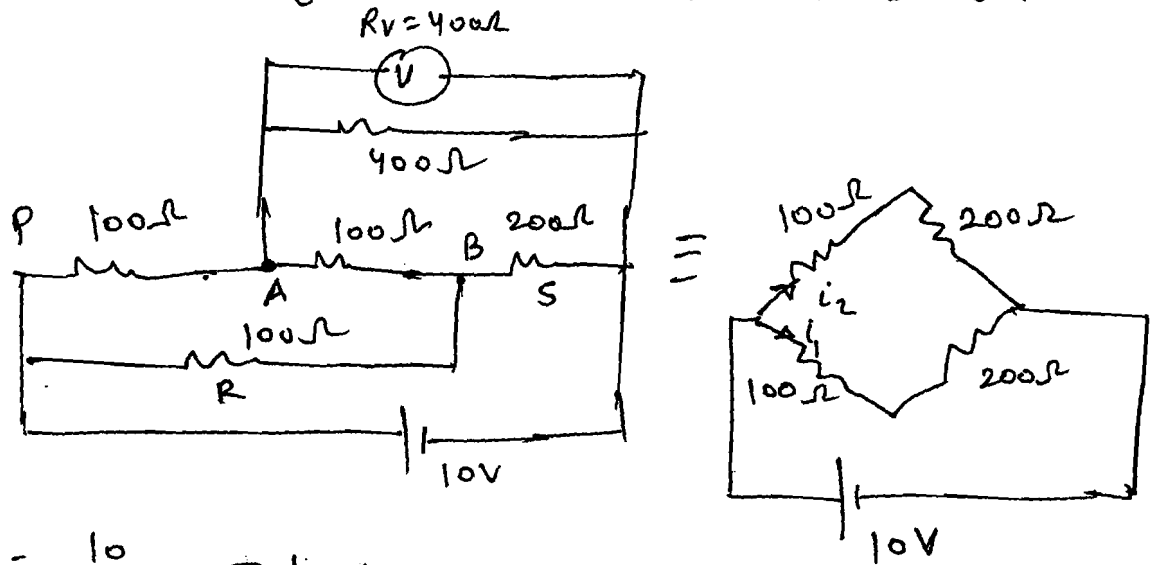 Rv = 400Ω
V
400Ω
P 100Ω 100Ω B 200Ω
A S
100Ω
R
10V
≡
100Ω 200Ω
i₂
i₁
100Ω 200Ω
10V
= 10